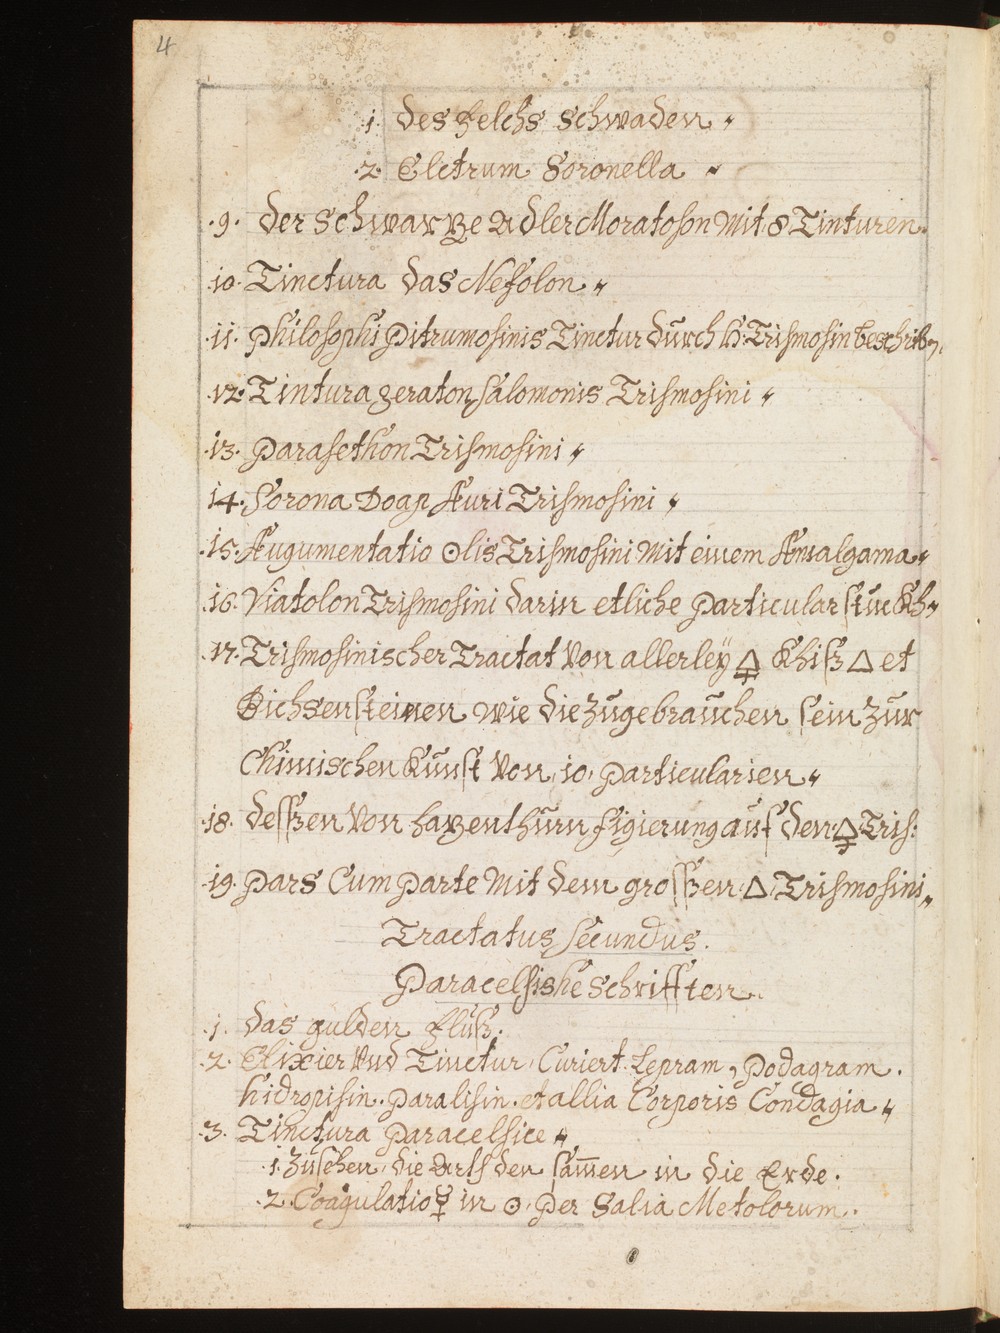 4
.1. des Kelchs schwaden „
.2. Elctrum Soronella „
.9. der schwartze Adler Moratoson Mit 8 Tinturen.
.10. Tinctura das Nefolon „
.11. Philosophi Pitrumosinis Tinctur durch H: Trismosin beschrib„
.12. Tintura geraton Salomonis Trismosini „
.13. Parasethon Trismosini „
14. Sorona Doap Auri Trismosini „
.15. Augumentatio ☉lis Trismosini Mit einem Amalgama „
.16. Viatolon Trismosini darin etliche Particular stückh „
.17. Trismosinischer Tractat Von allerley 🜍 Khiß 🜂 et
Bichsensteinen wie die zugebrauchen sein zur
Chimischen Kunst Von .10. Particularien „
.18. dessen Von hatzenthurn figierung auf den 🜍 Tris:
.19. Pars Cum Parte Mit dem grossen 🜂 Trismosini „
Tractatus Secundus.
Paracelsishe Schrifften.
.1. das gulden fluß.
.2. Elixier Vnd Tinctur, Curiert Lepram, Podagram.
hidropisin. Paralisin. et allia Corporis Condagia „
.3. Tinctura Paracelsice „
.1. Zusehen, die Arth den samen in die Erde.
.2. Coagulatio ☿ in ☉. Per Salia Metolorum.